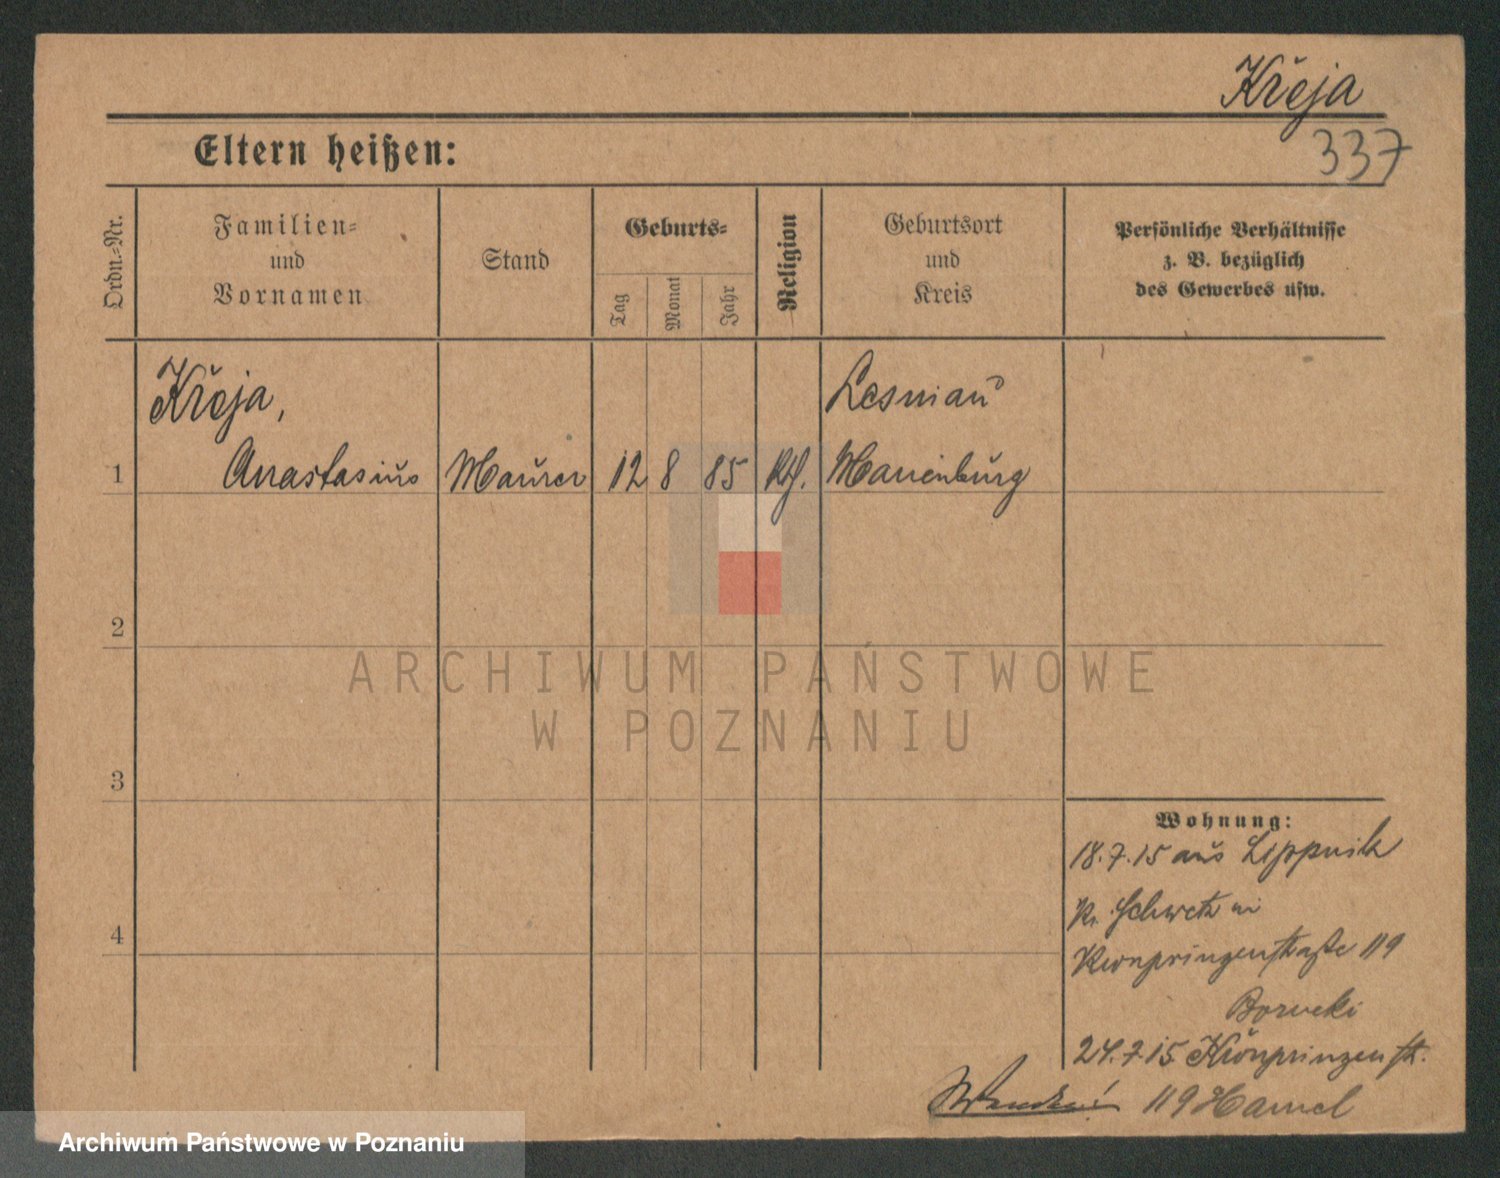 Křeja
337
Eltern heißen:
Ordn.-Nr.
Familien-
und
Vornamen
Stand
Geburts-
Tag
Monat
Jahr
Religion
Geburtsort
und
Kreis
Persönliche Verhältnisse
z. B. bezüglich
des Gewerbes usw.
Křeja,
Lesniau
1 Anastasius Maurer 12 8 85 Kth. Marienburg
2
3
4
ARCHIWUM PAŃSTWOWE
W POZNANIU
Wohnung:
18.7.15 aus Lippnik
Kr. Schwetz in
Kronprinzenstraße 119
Borucki
24.7.15 Kronprinzenstr.
119 Hamel
Archiwum Państwowe w Poznaniu